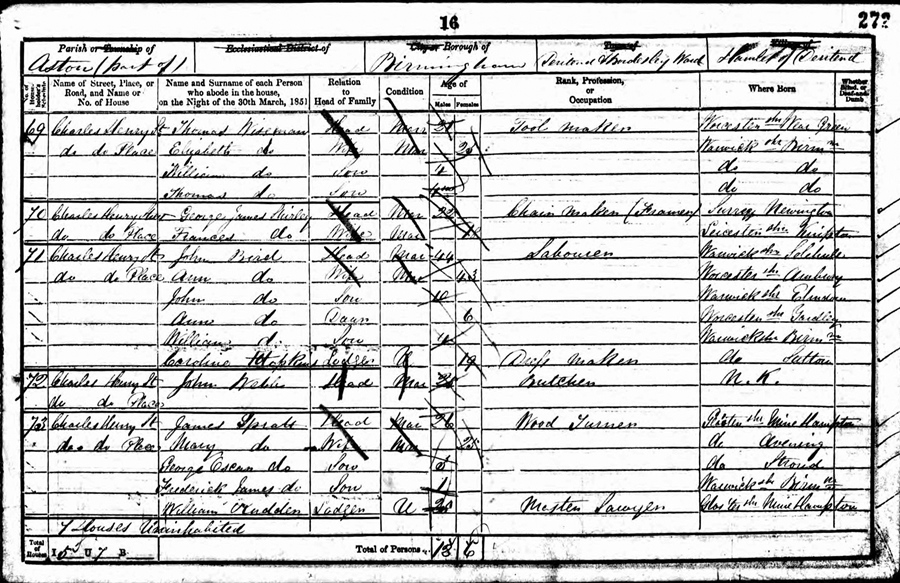 16
273
Parish or Township of Ecclesiastical District of City or Borough of Town of Village of
Aston (part of) Birmingham Deritend & Bordesley Ward Hamlet of Deritend
No. of Householder's Schedule Name of Street, Place, or Road, and Name or No. of House Name and Surname of each Person who abode in the house, on the Night of the 30th March, 1851 Relation to Head of Family Condition Age of Males Females Rank, Profession, or Occupation Where Born Whether Blind, or Deaf-and-Dumb
69 Charles Henry St Thomas Wiseman Head Mar 28 Tool Maker Worcester shr
do do Place Elizabeth do Wife Mar 25 Warwick shr Birm m
William do Son 4 do do
Thomas do Son do do
70 Charles Henry Street George James Shirley Head Mar 22 Chain Maker Surrey Newington
do do Place Frances do Wife Mar Leicester shr
71 Charles Henry St John Bird Head Mar 44 Labourer Warwick shr
do do Place Ann do Wife Mar 43 Worcester shr
John do Son Warwick shr
Ann do Daur 6 Worcester shr
William do Son 4 Warwick shr Birm m
Caroline Hopkins Lodger U 19 Dress Maker do Sutton
72 Charles Henry St John Webb Head Mar Butcher N. K.
do do Place
73 Charles Henry St James Spratt Head Mar 26 Wood Turner Minchhampton
do do Place Mary do Wife Mar 25 do Avening
George do Son 3 do Stroud
Frederick James do Son 1 Warwick shr Birm m
William Lodger U Master Sawyer Glos'ter shr Minchhampton
7 Houses Uninhabited
Total of Houses I 5 U 7 B Total of Persons 13 6